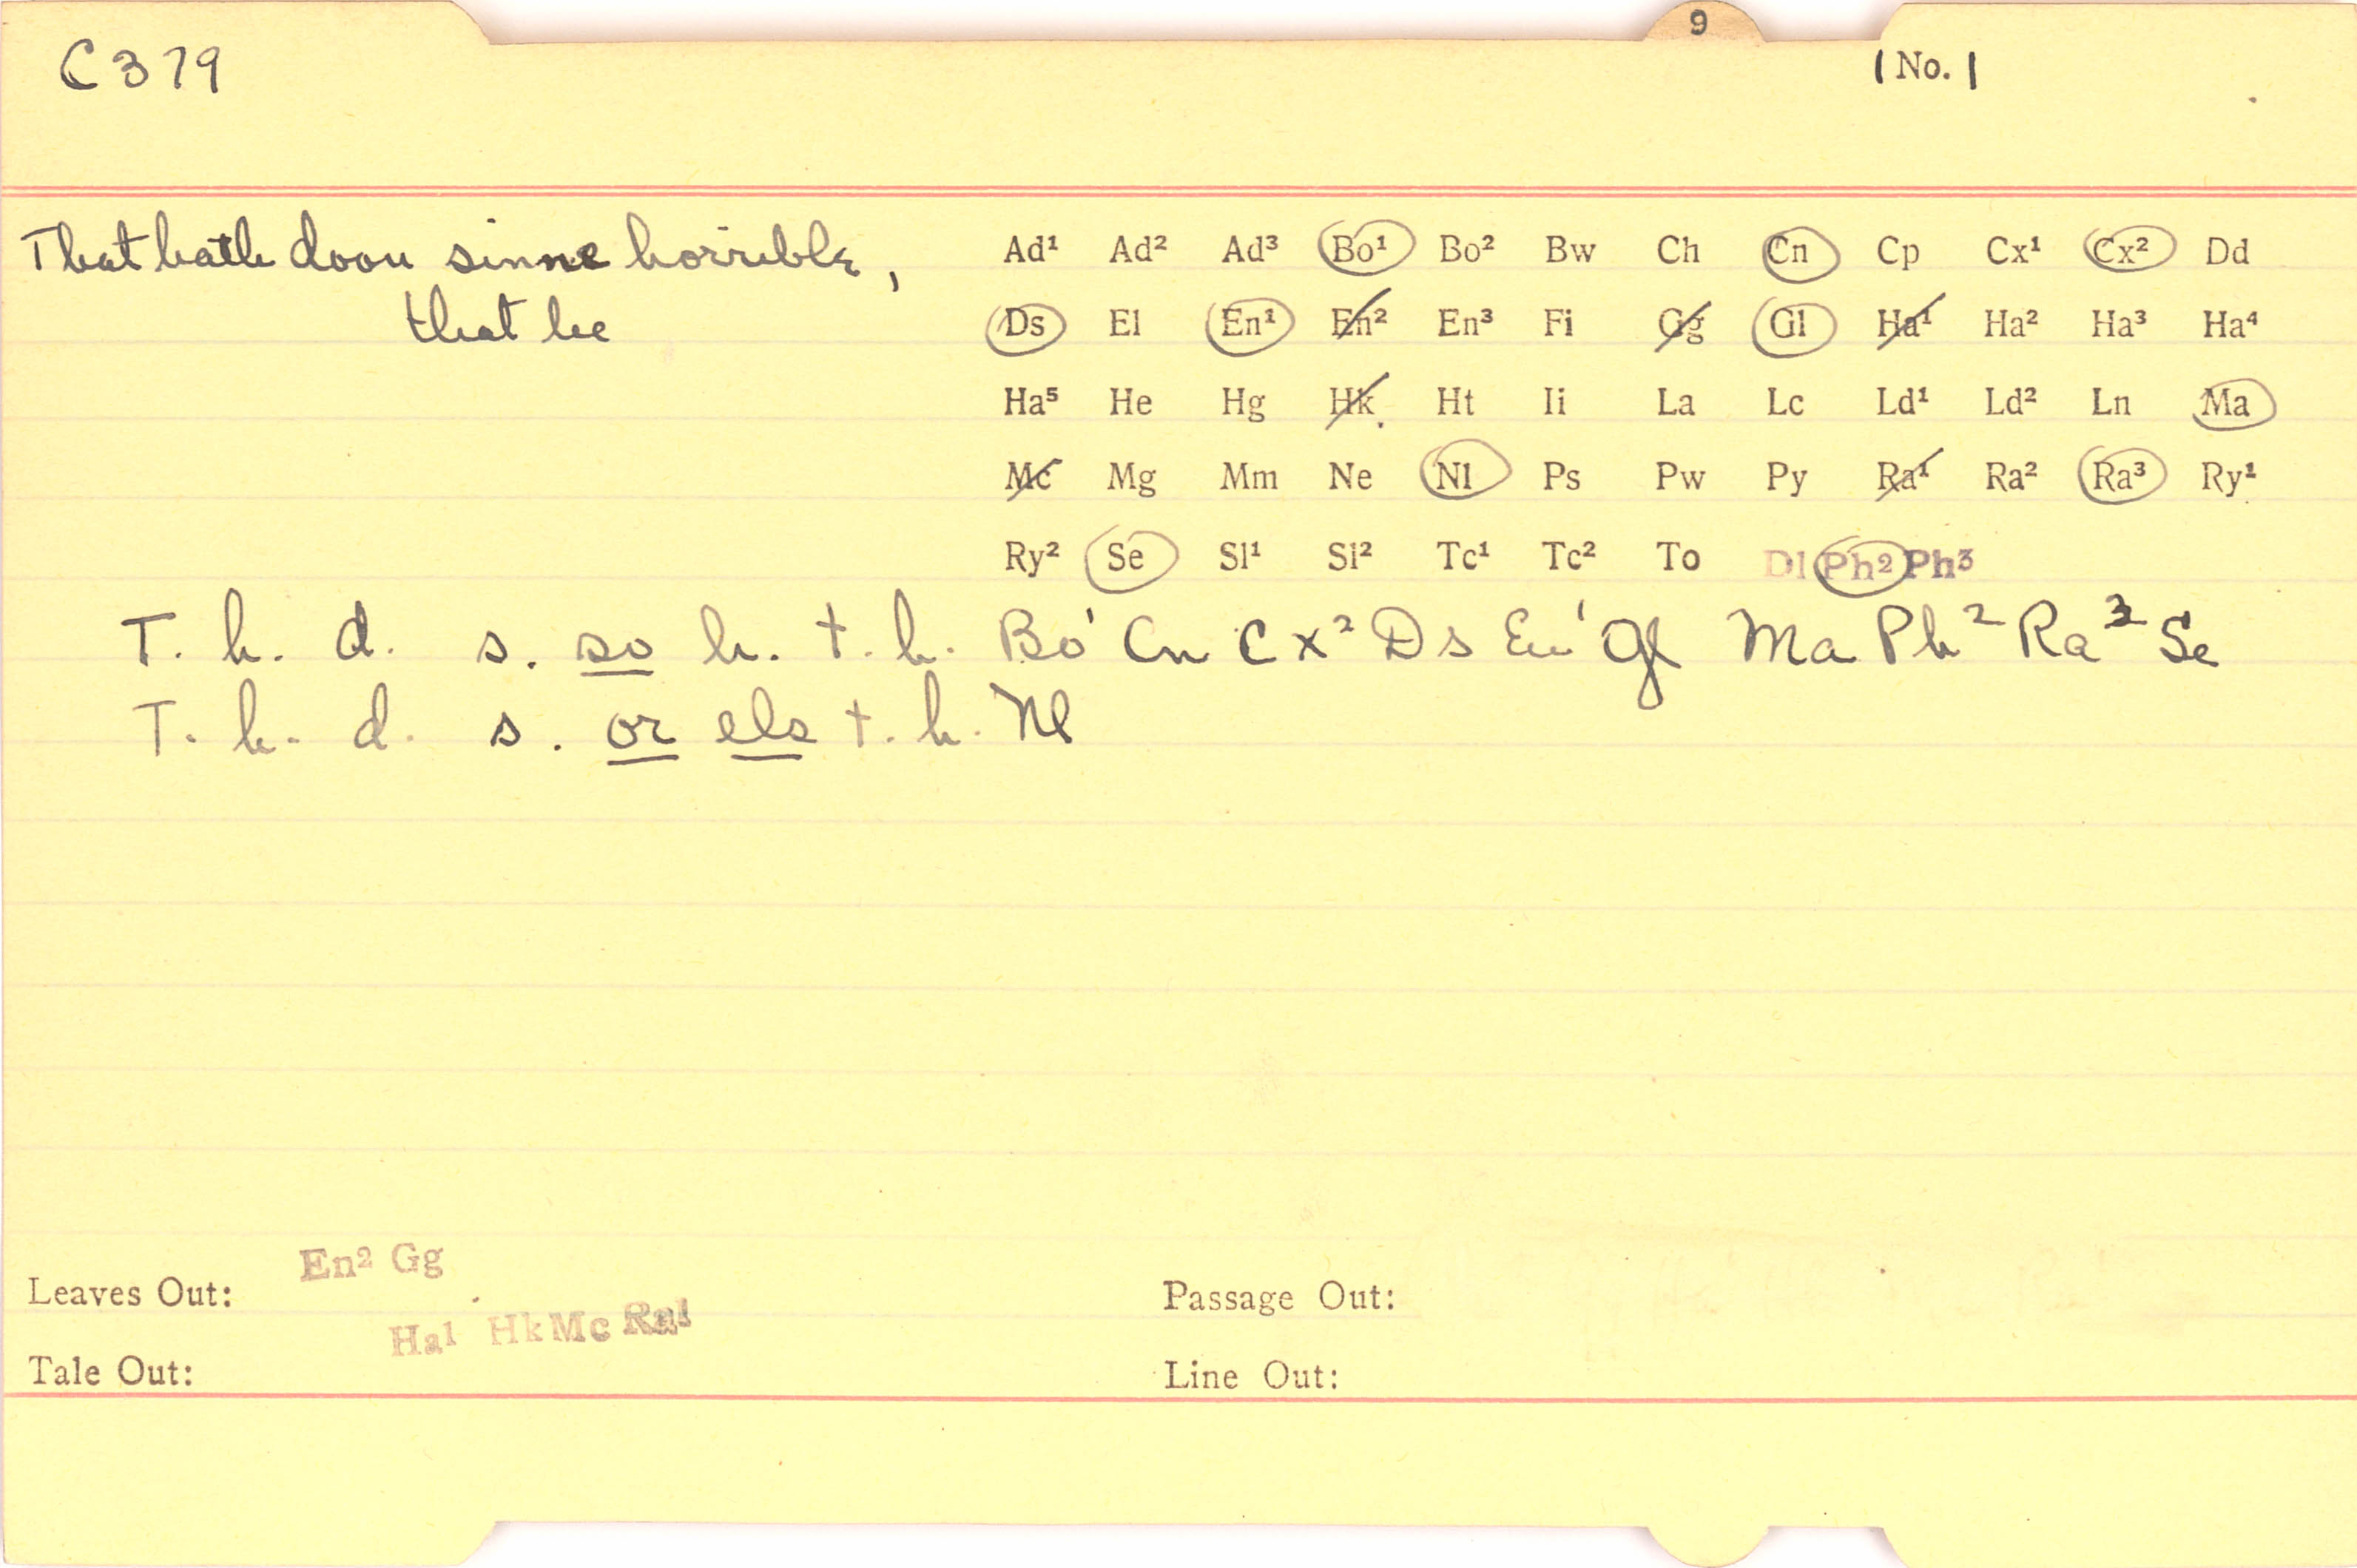 9
C 379
1 No. 1
That hath doon sinne horrible,
that he
Ad¹ Ad² Ad³ Bo¹ Bo² Bw Ch Cn Cp Cx¹ Cx² Dd
Ds El En¹ En² En³ Fi Gg Gl Ha¹ Ha² Ha³ Ha⁴
Ha⁵ He Hg Hk Ht Ii La Lc Ld¹ Ld² Ln Ma
Mc Mg Mm Ne Nl Ps Pw Py Ra¹ Ra² Ra³ Ry¹
Ry² Se Sl¹ Sl² Tc¹ Tc² To Dl Ph² Ph³
T. h. d. s. so h. t. h. Bo¹ Cn Cx² Ds En¹ Gl Ma Ph² Ra³ Se
T. h. d. s. or els t. h. Nl
En² Gg
Leaves Out:
Passage Out:
Ha¹ Hk Mc Ra¹
Tale Out:
Line Out: